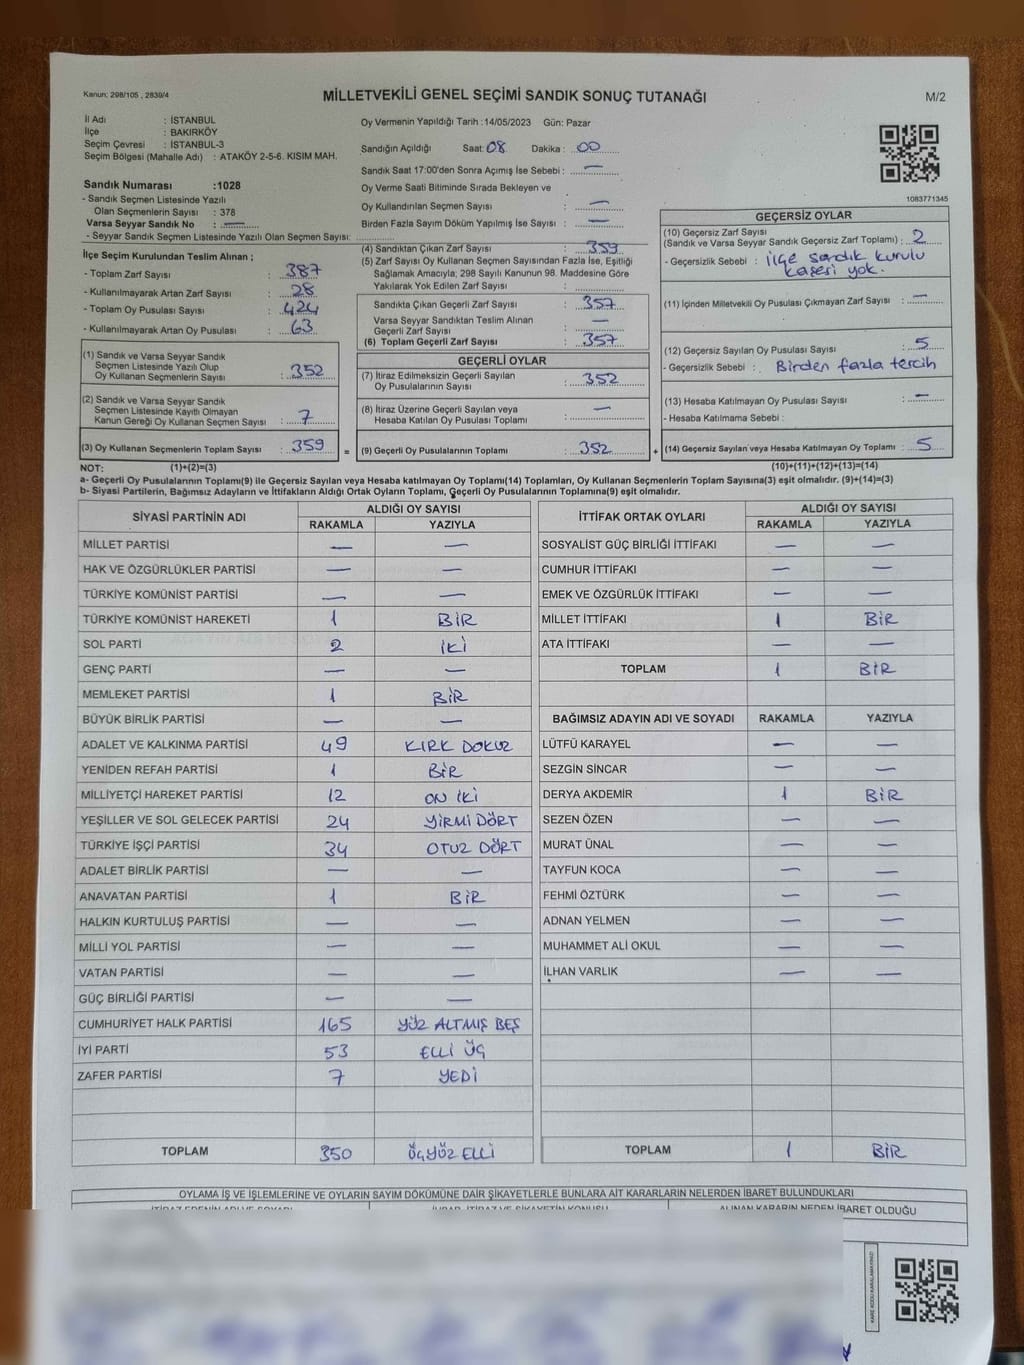 Kanun: 298/105 , 2839/4
MİLLETVEKİLİ GENEL SEÇİMİ SANDIK SONUÇ TUTANAĞI
M/2
İl Adı : İSTANBUL
İlçe : BAKIRKÖY
Seçim Çevresi : İSTANBUL-3
Seçim Bölgesi (Mahalle Adı) : ATAKÖY 2-5-6. KISIM MAH.
Sandık Numarası :1028
- Sandık Seçmen Listesinde Yazılı
Olan Seçmenlerin Sayısı : 378
Varsa Seyyar Sandık No : —
- Seyyar Sandık Seçmen Listesinde Yazılı Olan Seçmen Sayısı:
Oy Vermenin Yapıldığı Tarih :14/05/2023 Gün: Pazar
Sandığın Açıldığı Saat: 08 Dakika : 00
Sandık Saat 17:00'den Sonra Açımış İse Sebebi : —
Oy Verme Saati Bitiminde Sırada Bekleyen ve
Oy Kullandırılan Seçmen Sayısı : —
Birden Fazla Sayım Döküm Yapılmış İse Sayısı : —
1083771345
İlçe Seçim Kurulundan Teslim Alınan ;
- Toplam Zarf Sayısı : 387
- Kullanılmayarak Artan Zarf Sayısı : 28
- Toplam Oy Pusulası Sayısı : 424
- Kullanılmayarak Artan Oy Pusulası : 63
(1) Sandık ve Varsa Seyyar Sandık
Seçmen Listesinde Yazılı Olup
Oy Kullanan Seçmenlerin Sayısı : 352
(2) Sandık ve Varsa Seyyar Sandık
Seçmen Listesinde Kayıtlı Olmayan
Kanun Gereği Oy Kullanan Seçmen Sayısı : 7
(3) Oy Kullanan Seçmenlerin Toplam Sayısı : 359 =
(4) Sandıktan Çıkan Zarf Sayısı : 359
(5) Zarf Sayısı Oy Kullanan Seçmen Sayısından Fazla İse, Eşitliği
Sağlamak Amacıyla; 298 Sayılı Kanunun 98. Maddesine Göre
Yakılarak Yok Edilen Zarf Sayısı :
Sandıkta Çıkan Geçerli Zarf Sayısı : 357
Varsa Seyyar Sandıktan Teslim Alınan
Geçerli Zarf Sayısı : —
(6) Toplam Geçerli Zarf Sayısı : 357
GEÇERLİ OYLAR
(7) İtiraz Edilmeksizin Geçerli Sayılan
Oy Pusulalarının Sayısı : 352
(8) İtiraz Üzerine Geçerli Sayılan veya
Hesaba Katılan Oy Pusulaları Toplamı : —
(9) Geçerli Oy Pusulalarının Toplamı : 352 +
GEÇERSİZ OYLAR
(10) Geçersiz Zarf Sayısı
(Sandık ve Varsa Seyyar Sandık Geçersiz Zarf Toplamı) : 2
- Geçersizlik Sebebi : İlçe sandık kurulu
kaşesi yok.
(11) İçinden Milletvekili Oy Pusulası Çıkmayan Zarf Sayısı : —
(12) Geçersiz Sayılan Oy Pusulası Sayısı : 5
- Geçersizlik Sebebi : Birden fazla tercih
(13) Hesaba Katılmayan Oy Pusulası Sayısı : —
- Hesaba Katılmama Sebebi :
(14) Geçersiz Sayılan veya Hesaba Katılmayan Oy Toplamı : 5
NOT: (1)+(2)=(3)
(10)+(11)+(12)+(13)=(14)
a- Geçerli Oy Pusulalarının Toplamı(9) ile Geçersiz Sayılan veya Hesaba katılmayan Oy Toplamı(14) Toplamları, Oy Kullanan Seçmenlerin Toplam Sayısına(3) eşit olmalıdır. (9)+(14)=(3)
b- Siyasi Partilerin, Bağımsız Adayların ve İttifakların Aldığı Ortak Oyların Toplamı, Geçerli Oy Pusulalarının Toplamına(9) eşit olmalıdır.
SİYASİ PARTİNİN ADI ALDIĞI OY SAYISI
RAKAMLA YAZIYLA
MİLLET PARTİSİ — —
HAK VE ÖZGÜRLÜKLER PARTİSİ — —
TÜRKİYE KOMÜNİST PARTİSİ — —
TÜRKİYE KOMÜNİST HAREKETİ 1 BİR
SOL PARTİ 2 İKİ
GENÇ PARTİ — —
MEMLEKET PARTİSİ 1 BİR
BÜYÜK BİRLİK PARTİSİ — —
ADALET VE KALKINMA PARTİSİ 49 KIRK DOKUZ
YENİDEN REFAH PARTİSİ 1 BİR
MİLLİYETÇİ HAREKET PARTİSİ 12 ON İKİ
YEŞİLLER VE SOL GELECEK PARTİSİ 24 YİRMİ DÖRT
TÜRKİYE İŞÇİ PARTİSİ 34 OTUZ DÖRT
ADALET BİRLİK PARTİSİ — —
ANAVATAN PARTİSİ 1 BİR
HALKIN KURTULUŞ PARTİSİ — —
MİLLİ YOL PARTİSİ — —
VATAN PARTİSİ — —
GÜÇ BİRLİĞİ PARTİSİ — —
CUMHURİYET HALK PARTİSİ 165 YÜZ ALTMIŞ BEŞ
İYİ PARTİ 53 ELLİ ÜÇ
ZAFER PARTİSİ 7 YEDİ
TOPLAM 350 ÜÇYÜZ ELLİ
İTTİFAK ORTAK OYLARI ALDIĞI OY SAYISI
RAKAMLA YAZIYLA
SOSYALİST GÜÇ BİRLİĞİ İTTİFAKI — —
CUMHUR İTTİFAKI — —
EMEK VE ÖZGÜRLÜK İTTİFAKI — —
MİLLET İTTİFAKI 1 BİR
ATA İTTİFAKI — —
TOPLAM 1 BİR
BAĞIMSIZ ADAYIN ADI VE SOYADI RAKAMLA YAZIYLA
LÜTFÜ KARAYEL — —
SEZGİN SİNCAR — —
DERYA AKDEMİR 1 BİR
SEZEN ÖZEN — —
MURAT ÜNAL — —
TAYFUN KOCA — —
FEHMİ ÖZTÜRK — —
ADNAN YELMEN — —
MUHAMMET ALİ OKUL — —
İLHAN VARLIK — —
TOPLAM 1 BİR
OYLAMA İŞ VE İŞLEMLERİNE VE OYLARIN SAYIM DÖKÜMÜNE DAİR ŞİKAYETLERLE BUNLARA AİT KARARLARIN NELERDEN İBARET BULUNDUKLARI
ALINAN KARARIN NEDEN İBARET OLDUĞU